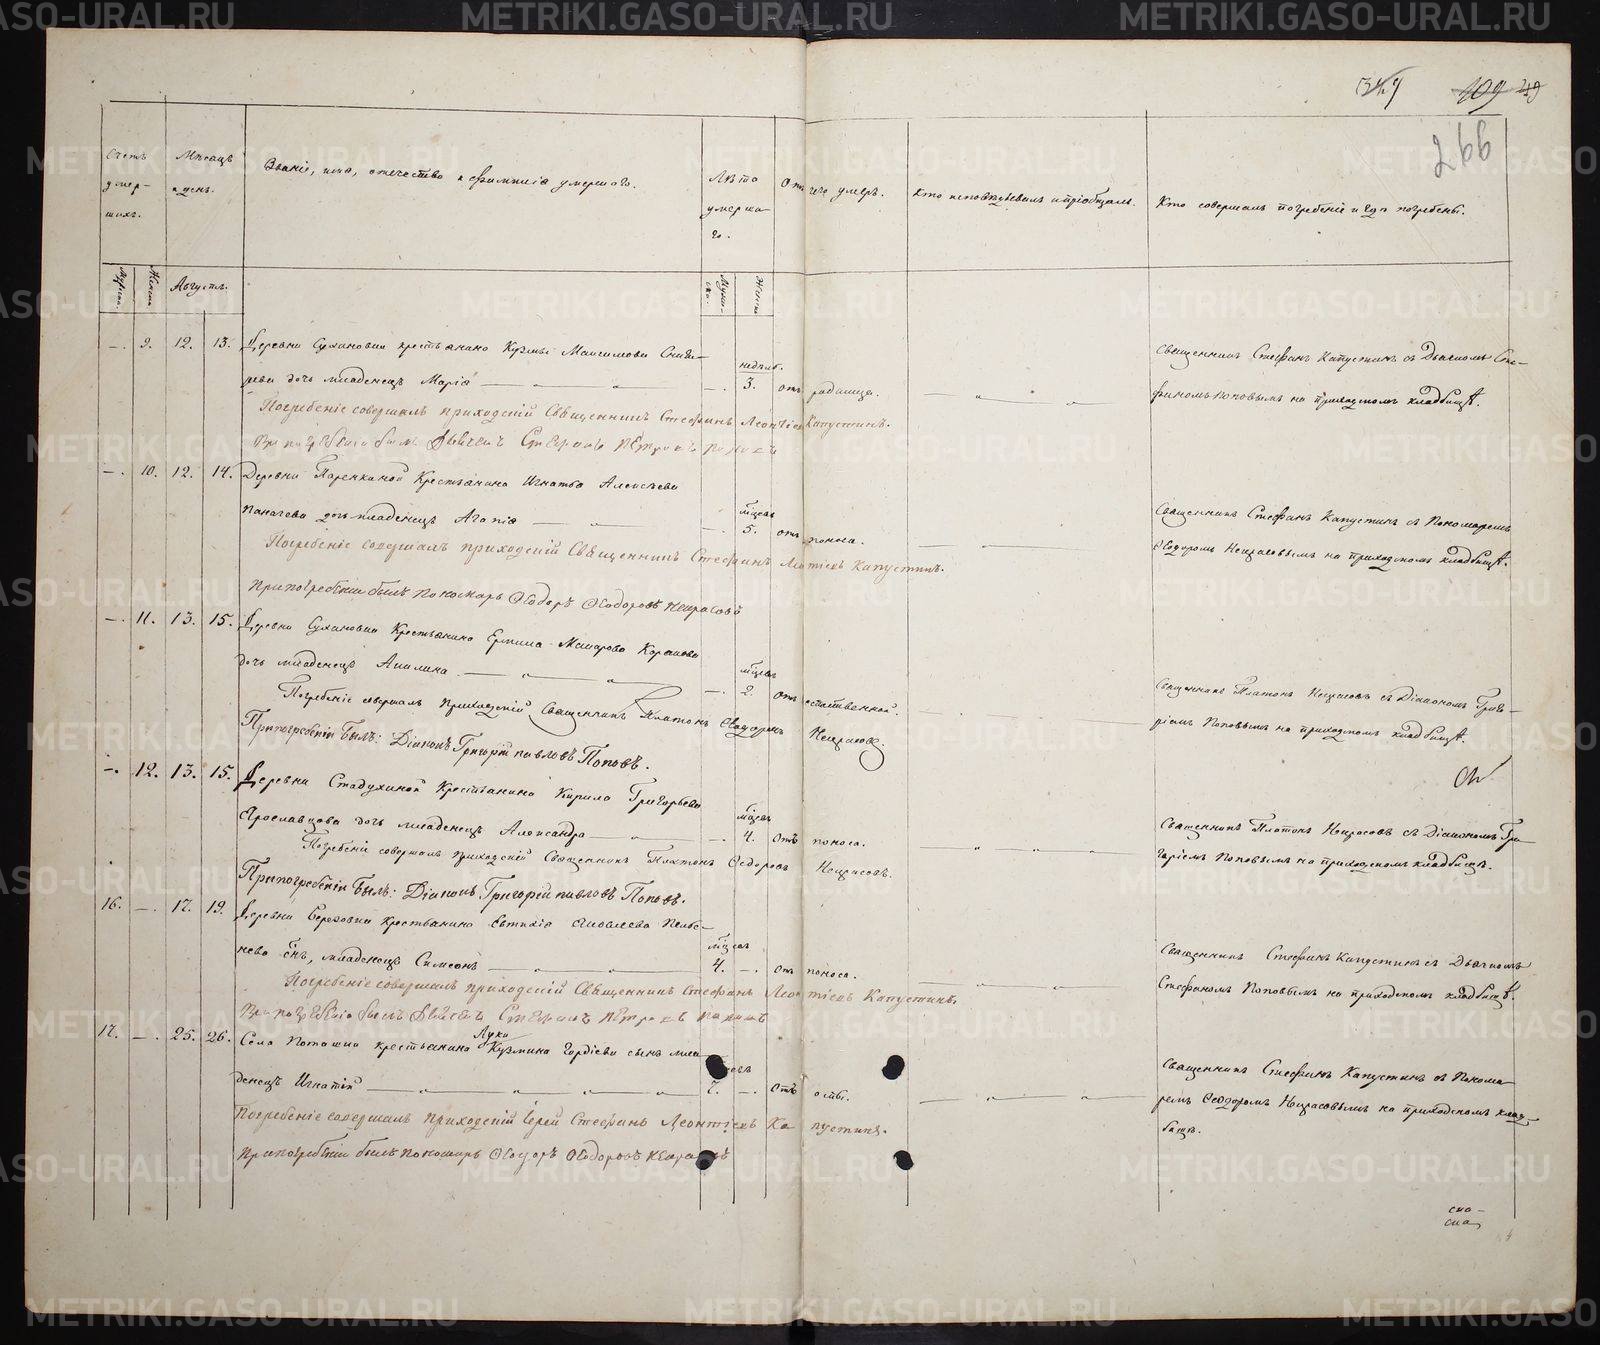 349 109 49
266
Счетъ умер-шихъ.
Мѣсяцъ и день.
Званіе, имя, отечество и фамилія умершаго.
Лѣта умерша-го.
Отъ чего умеръ.
Кто исповѣдывалъ и пріобщалъ.
Кто совершалъ погребеніе и гдѣ погребены.
Мужеска. Женска. Августъ. Мужес-ска. Женска
—. 9. 12. 13. Деревни Сухановки крестьянина Кузьмы Максимова
рева дочь младенецъ Марія — " — " — —. недѣль. 3. отъ родимца. — " — " —
Священникъ Стефанъ Капустинъ съ Дьячкомъ Сте-
фаномъ Поповымъ на приходскомъ кладбищѣ.
Погребеніе совершалъ приходскій Священникъ Стефанъ Леонтіевъ Капустинъ.
При погребеніи былъ Дьячекъ Стефанъ Петровъ Поповъ
—. 10. 12. 14. Деревни Паренкиной Крестьянина Игнатья Алексѣева
Паначева дочь младенецъ Агапія — " — —. мѣсяц. 5. отъ поноса. — " —
Священникъ Стефанъ Капустинъ съ Пономаремъ
Ѳедоромъ Некрасовымъ на приходскомъ кладбищѣ.
Погребеніе совершалъ приходскій Священникъ Стефанъ Леонтіевъ Капустинъ.
При погребеніи былъ Пономарь Ѳеодоръ Ѳеодоровъ Некрасовъ
—. 11. 13. 15. Деревни Сухановки Крестьянина Ермила Макарова
дочь младенецъ Акилина — " — " — —. мѣсяц. 2. отъ естественной.
Священникъ Платонъ Некрасовъ съ Діакономъ Григо-
ріемъ Поповымъ на приходскомъ кладбищѣ.
Погребеніе совершалъ Приходскій Священникъ Платонъ Ѳедоровъ Некрасовъ.
При погребеніи Былъ: Діаконъ Григорій Павловъ Поповъ.
—. 12. 13. 15. Деревни Стадухиной Крестьянина Кирила Григорьева
Ярославцова дочь младенецъ Александра — " — —. мѣсяц. 4. отъ поноса. — " — " —
Священникъ Платонъ Некрасовъ съ Діакономъ Гри-
горіемъ Поповымъ на приходскомъ кладбищѣ.
Погребеніе совершалъ приходскій Священникъ Платонъ Ѳедоровъ Некрасовъ.
При погребеніи Былъ: Діаконъ Григорій Павловъ Поповъ.
16. —. 17. 19. Деревни Береговки Крестьянина Евтихія Яковлева
нева сынъ, младенецъ Симеонъ — " — " — мѣсяц. 4. —. отъ поноса. — " — " —
Священникъ Стефанъ Капустинъ съ Дьячкомъ
Стефаномъ Поповымъ на приходскомъ кладбищѣ.
Погребеніе совершалъ приходскій Священникъ Стефанъ Леонтіевъ Капустинъ.
При погребеніи былъ Дьячекъ Стефанъ Петровъ Поповъ
17. —. 25. 26. Села Поташки крестьянина Луки Кузмина Гордѣева сынъ мла-
денецъ Игнатій — " — " — " — " — 7. —. отъ оспы. — " — " —
Священникъ Стефанъ Капустинъ съ Понома-
ремъ Ѳеодоромъ Некрасовымъ на приходскомъ клад-
бищѣ.
Погребеніе совершалъ приходскій Іерей Стефанъ Леонтіевъ Капустинъ.
При погребеніи былъ Пономарь Ѳеодоръ Ѳеодоровъ Некрасовъ
METRIKI.GASO-URAL.RU